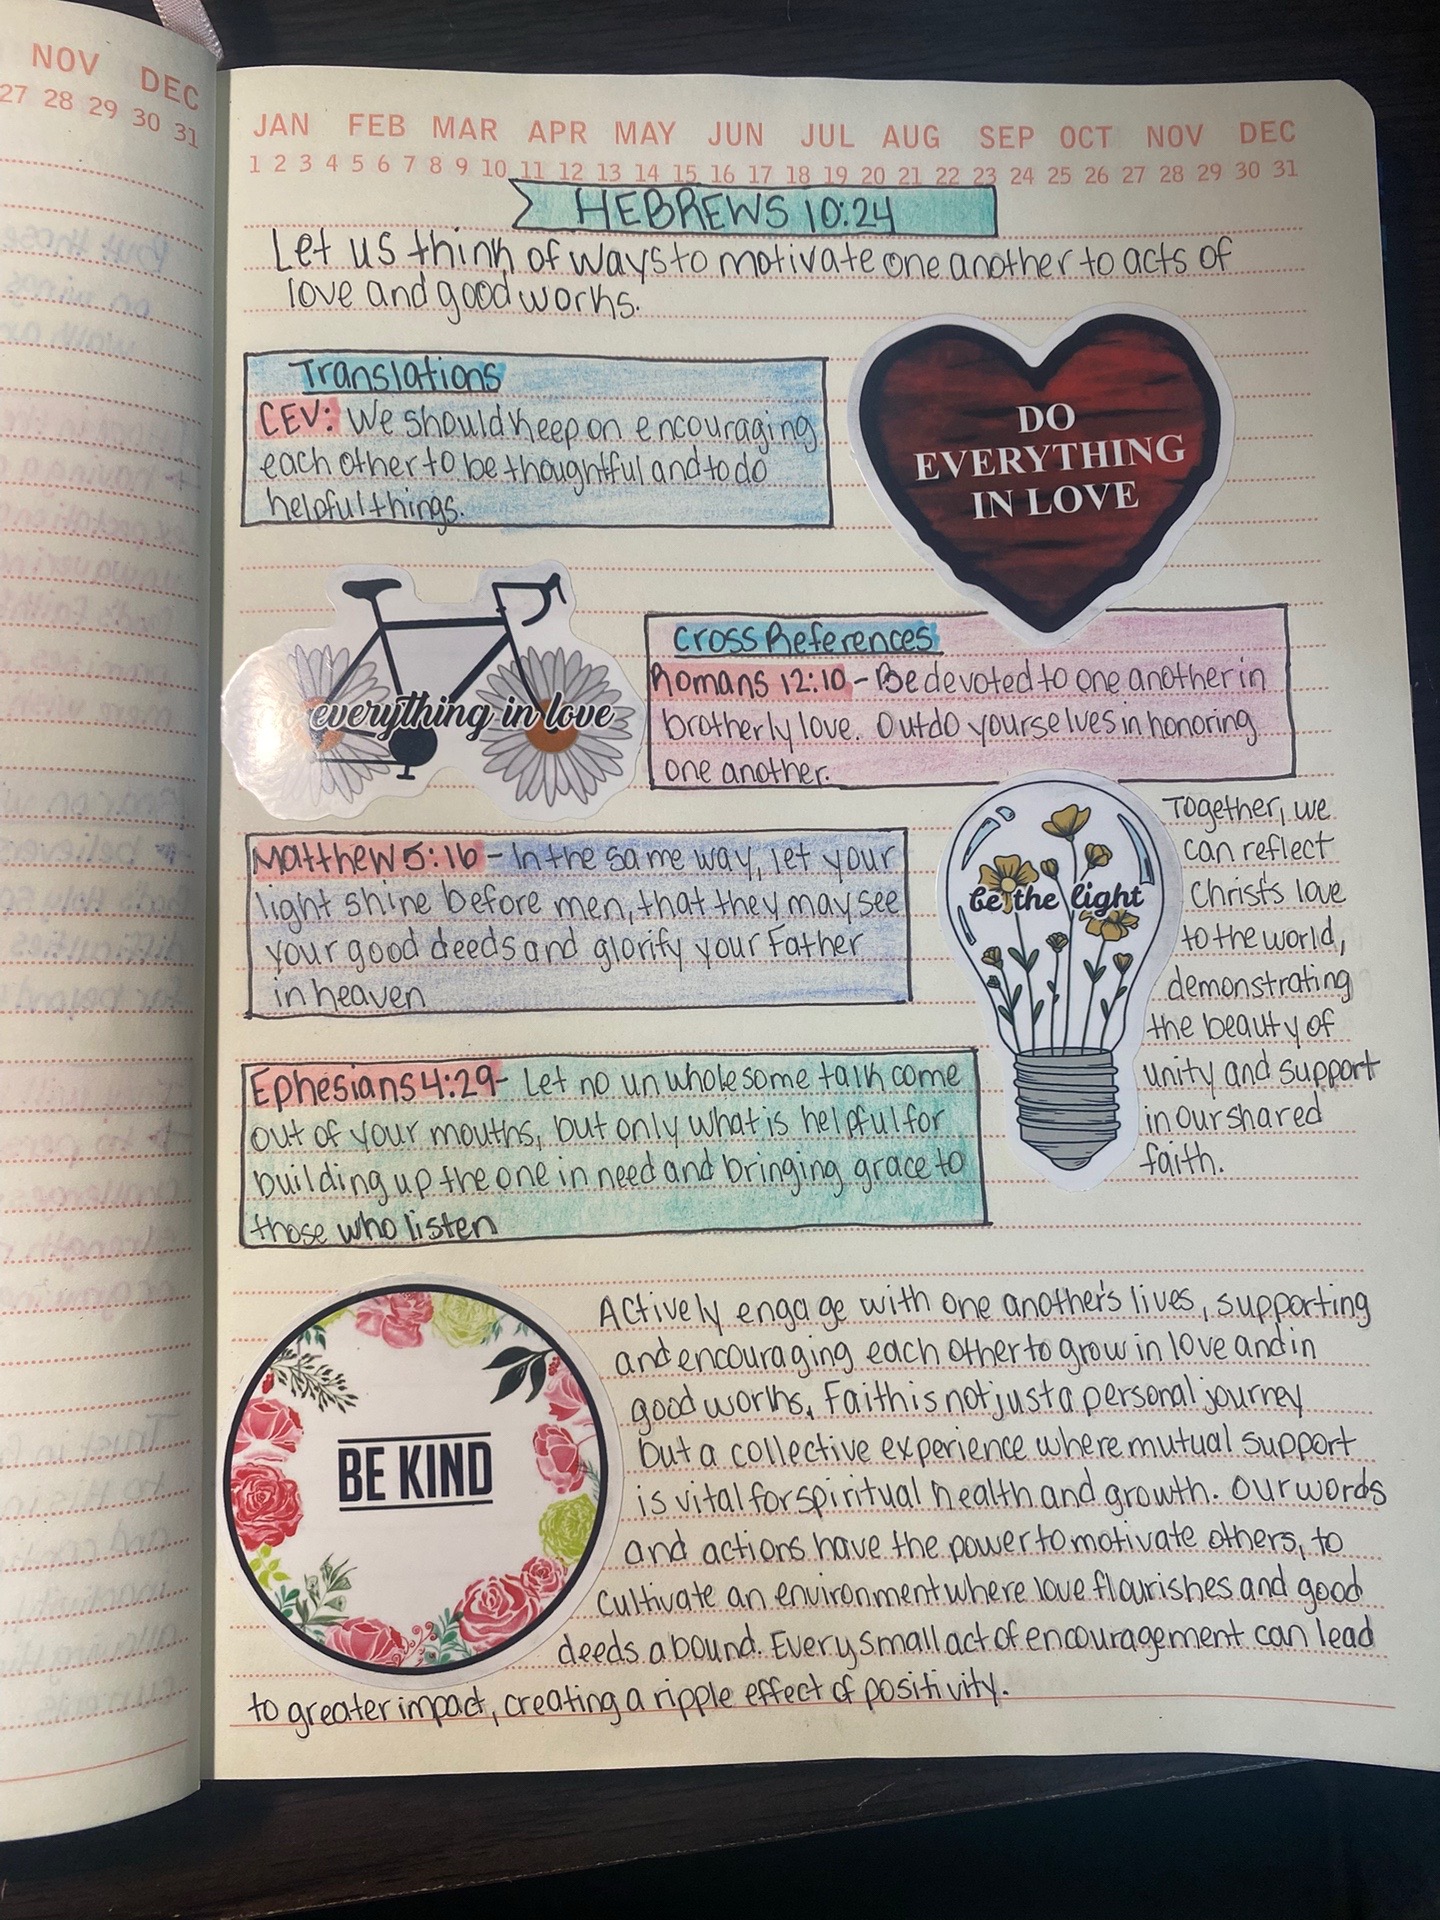 NOV DEC
27 28 29 30 31
JAN FEB MAR APR MAY JUN JUL AUG SEP OCT NOV DEC
1 2 3 4 5 6 7 8 9 10 11 12 13 14 15 16 17 18 19 20 21 22 23 24 25 26 27 28 29 30 31
HEBREWS 10:24
Let us think of ways to motivate one another to acts of
love and good works.
Translations
CEV: We should keep on encouraging
each other to be thoughtful and to do
helpful things.
DO
EVERYTHING
IN LOVE
everything in love
Cross References
Romans 12:10 - Be devoted to one another in
brotherly love. Outdo yourselves in honoring
one another.
Matthew 5:16 - In the same way, let your
light shine before men, that they may see
your good deeds and glorify your Father
in heaven
be the light
Together, we
can reflect
Christ's love
to the world,
demonstrating
the beauty of
unity and support
in our shared
faith.
Ephesians 4:29 - Let no unwholesome talk come
out of your mouths, but only what is helpful for
building up the one in need and bringing grace to
those who listen
BE KIND
Actively engage with one another's lives, supporting
and encouraging each other to grow in love and in
good works. Faith is not just a personal journey
but a collective experience where mutual support
is vital for spiritual health and growth. Our words
and actions have the power to motivate others, to
cultivate an environment where love flourishes and good
deeds abound. Every small act of encouragement can lead
to greater impact, creating a ripple effect of positivity.